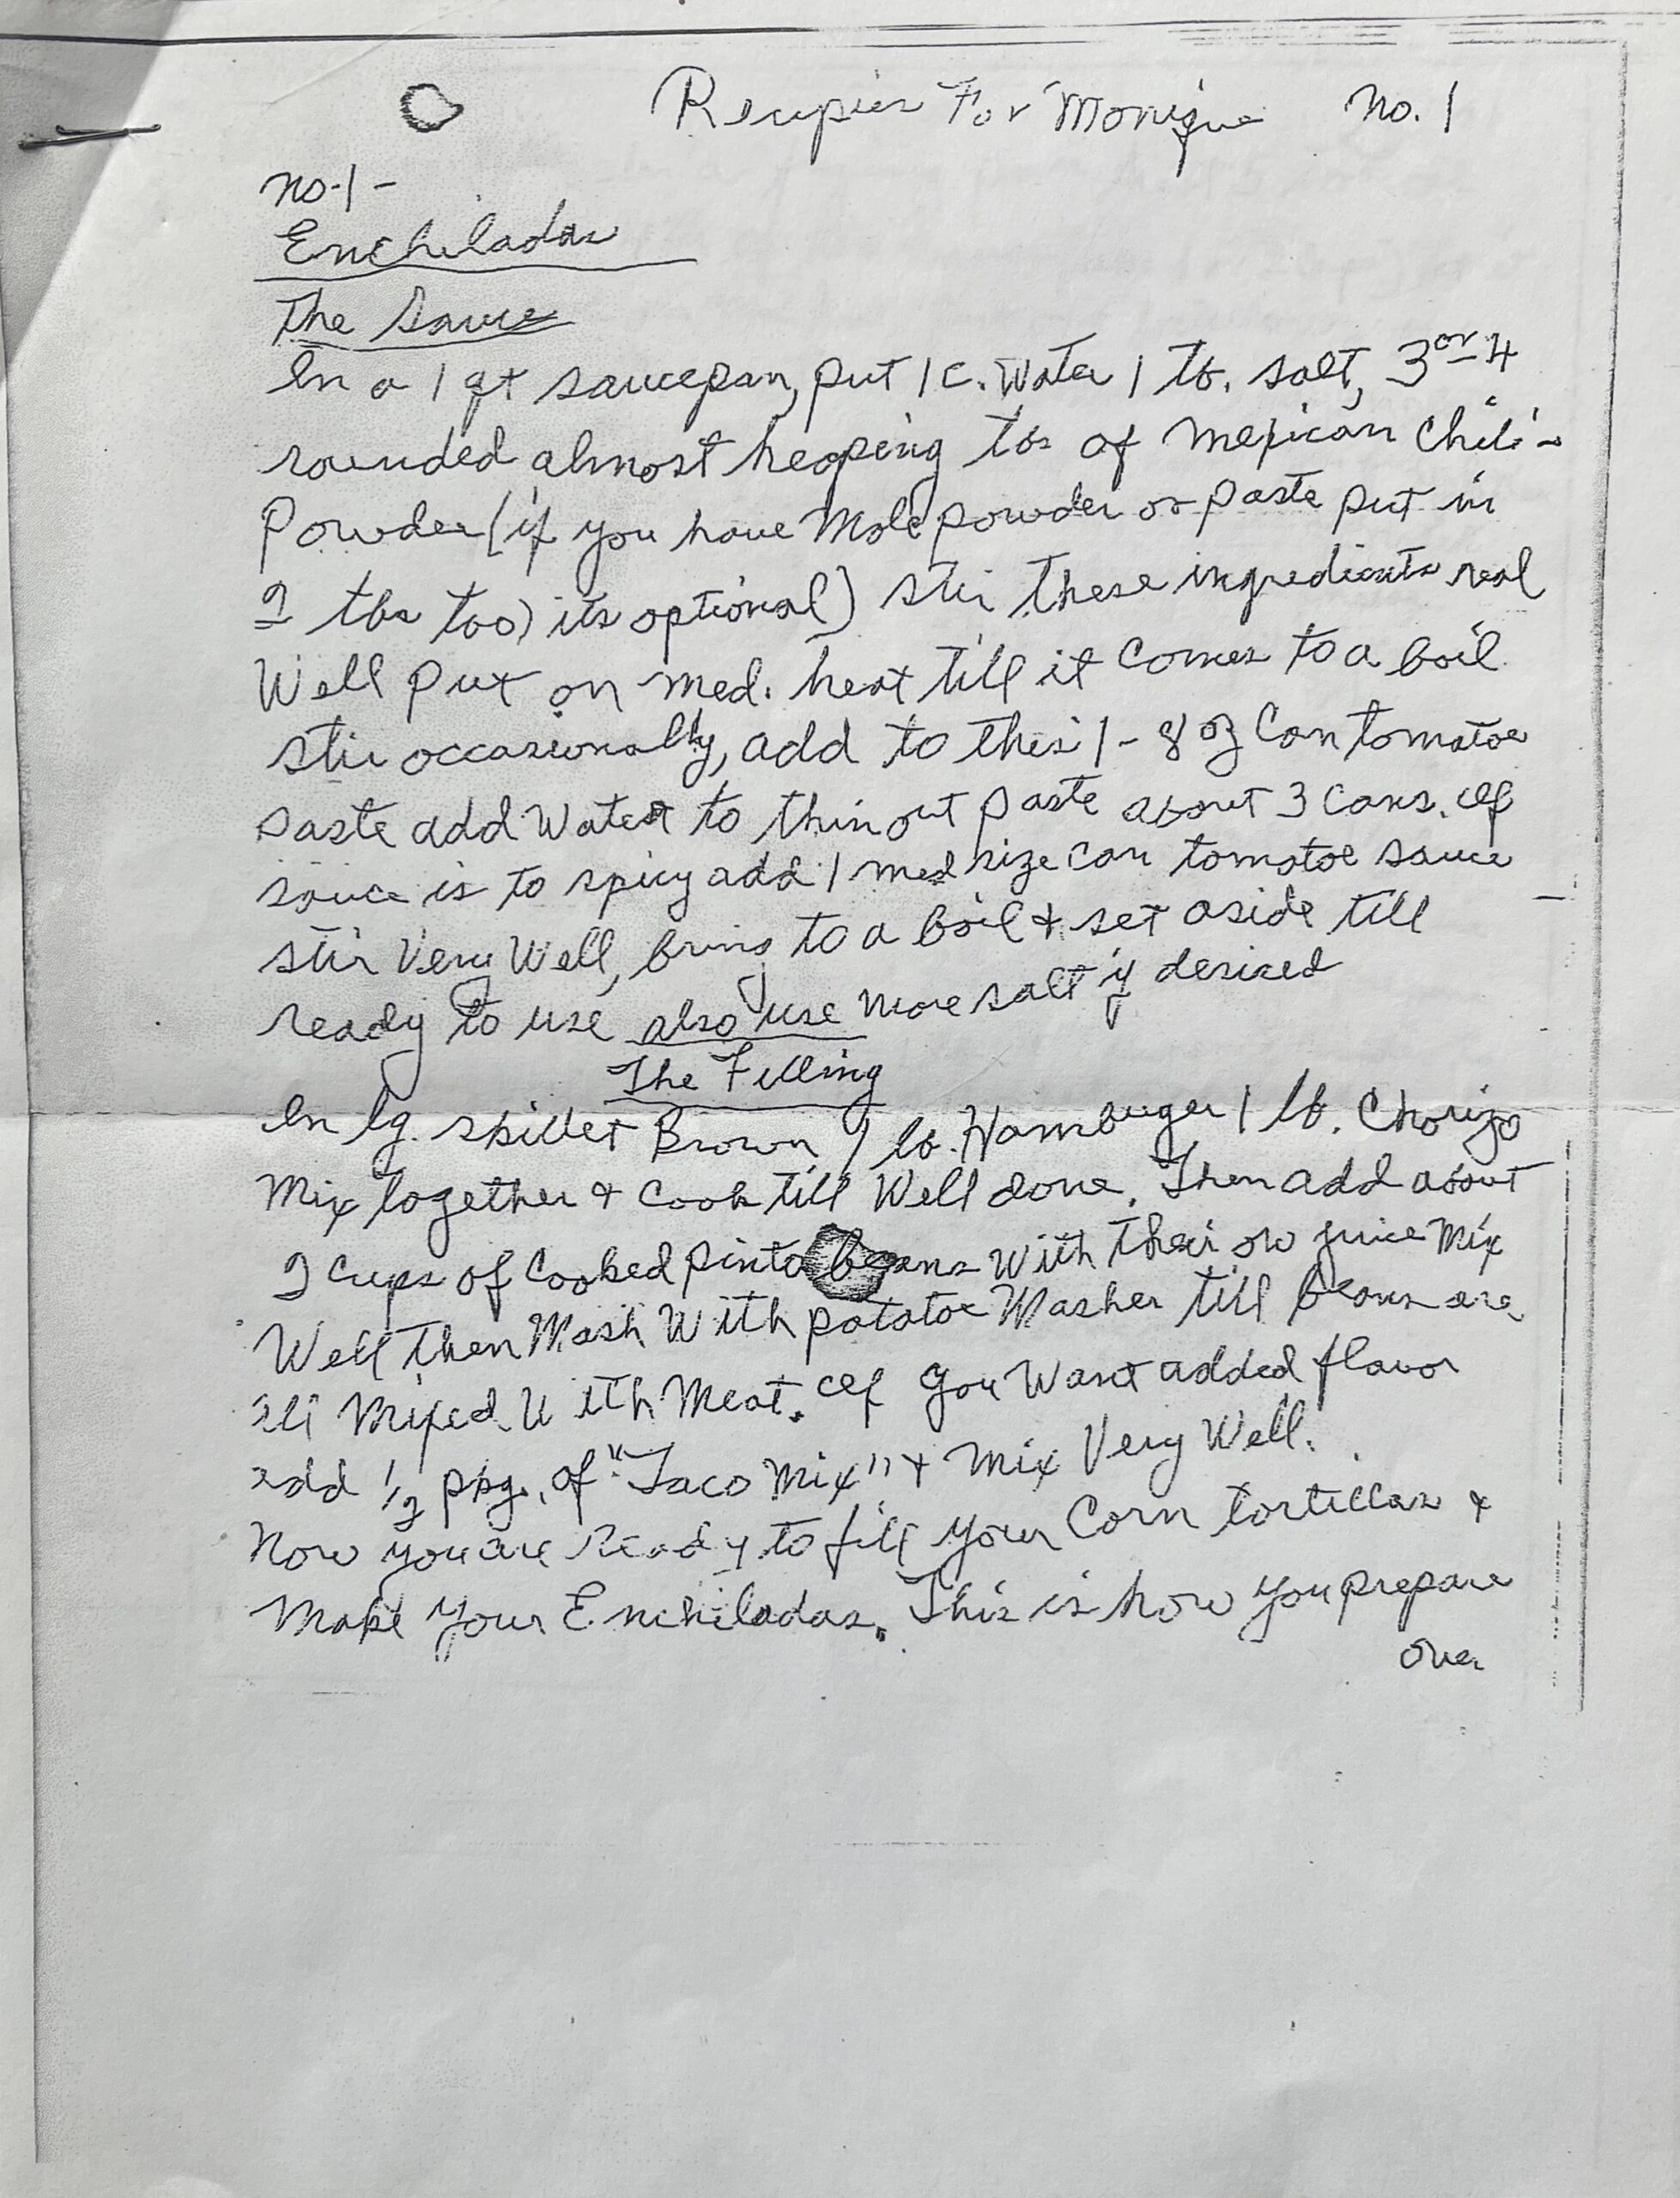 Recipies For Monique No. 1
No-1-
Enchiladas
The Sauce
In a 1 qt saucepan, put 1 c. Water 1 tb. salt, 3 or 4
rounded almost heaping tbs of Mexican Chili-
Powder (if you have Mole powder or paste put in
2 tbs too) its optional) Stir these ingredients real
Well put on med. heat till it Comes to a boil
stir occasionally, add to this 1-8 oz Can tomatoe
paste add Water to thin out paste about 3 Cans. If
sauce is to spicy add 1 med size Can tomatoe sauce
stir Very Well, bring to a boil & set aside till
ready to use also use More salt if desired
The Filling
In lg. skillet Brown 1 lb. Hamburger 1 lb. Chorizo
Mix together & Cook till Well done. Then add about
2 Cups of Cooked pinto beans With their ow juice Mix
Well then Mash With potatoe Masher till beans are
all Mixed With Meat. If you Want added flavor
add 1/2 pkg. of "Taco Mix" & Mix Very Well.
Now you are Ready to fill your Corn tortillas &
Make your Enchiladas. This is how you prepare
over